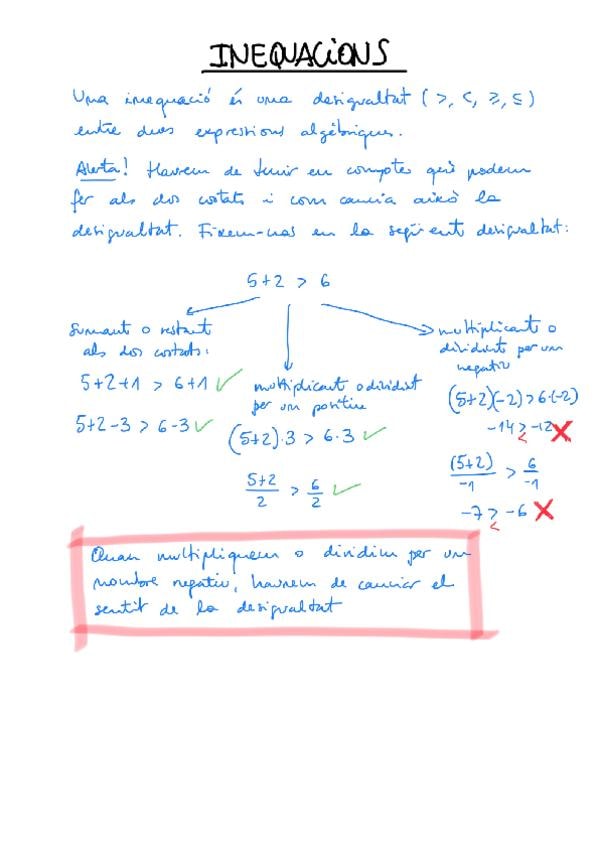 INEQUACIONS
Una inequació és una desigualtat (>, <, ≥, ≤)
entre dues expressions algèbriques.
Alerta! Haurem de tenir en compte què podem
fer als dos costats i com canvia això la
desigualtat. Fixem-nos en la següent desigualtat:
5+2 > 6
Sumant o restant
als dos costats:
5+2+1 > 6+1 ✓
5+2-3 > 6-3 ✓
multiplicant o dividint
per un positiu
(5+2)·3 > 6·3 ✓
5+2/2 > 6/2 ✓
multiplicant o
dividint per un
negatiu
(5+2)(-2) > 6·(-2)
-14 > -12 ✗
<
(5+2)/-1 > 6/-1
-7 > -6 ✗
<
Quan multipliquem o dividim per un
nombre negatiu, haurem de canviar el
sentit de la desigualtat